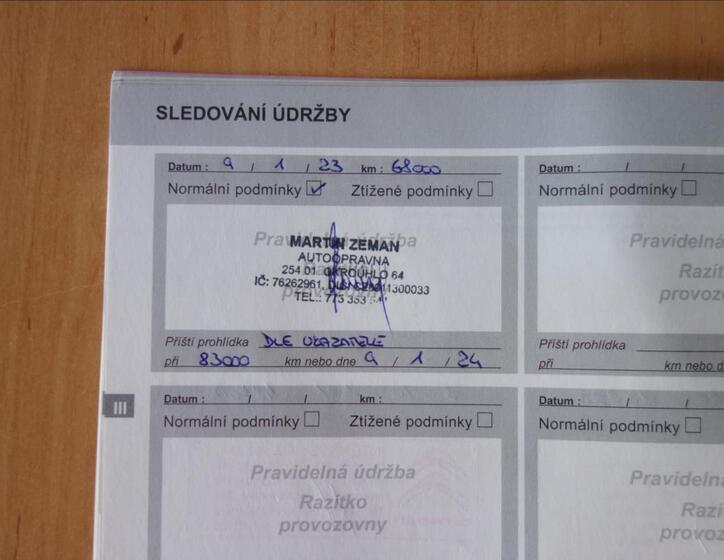 SLEDOVÁNÍ ÚDRŽBY
Datum : 9 / 1 / 23 km : 68000
Normální podmínky Ztížené podmínky
Pravidelná údržba
MARTIN ZEMAN
AUTOOPRAVNA
254 01 OKROUHLO 64
IČ: 76262961,
TEL.: 773 353
Příští prohlídka DLE UKAZATELE
při 83000 km nebo dne 9 / 1 / 24
Datum : / / km :
Normální podmínky Ztížené podmínky
Pravidelná údržba
Razítko
provozovny
Datum : / /
Normální podmínky
Pravideln
Razít
provozo
Příští prohlídka
při km nebo d
Datum : / /
Normální podmínky
Pravideln
Razí
provozo
III